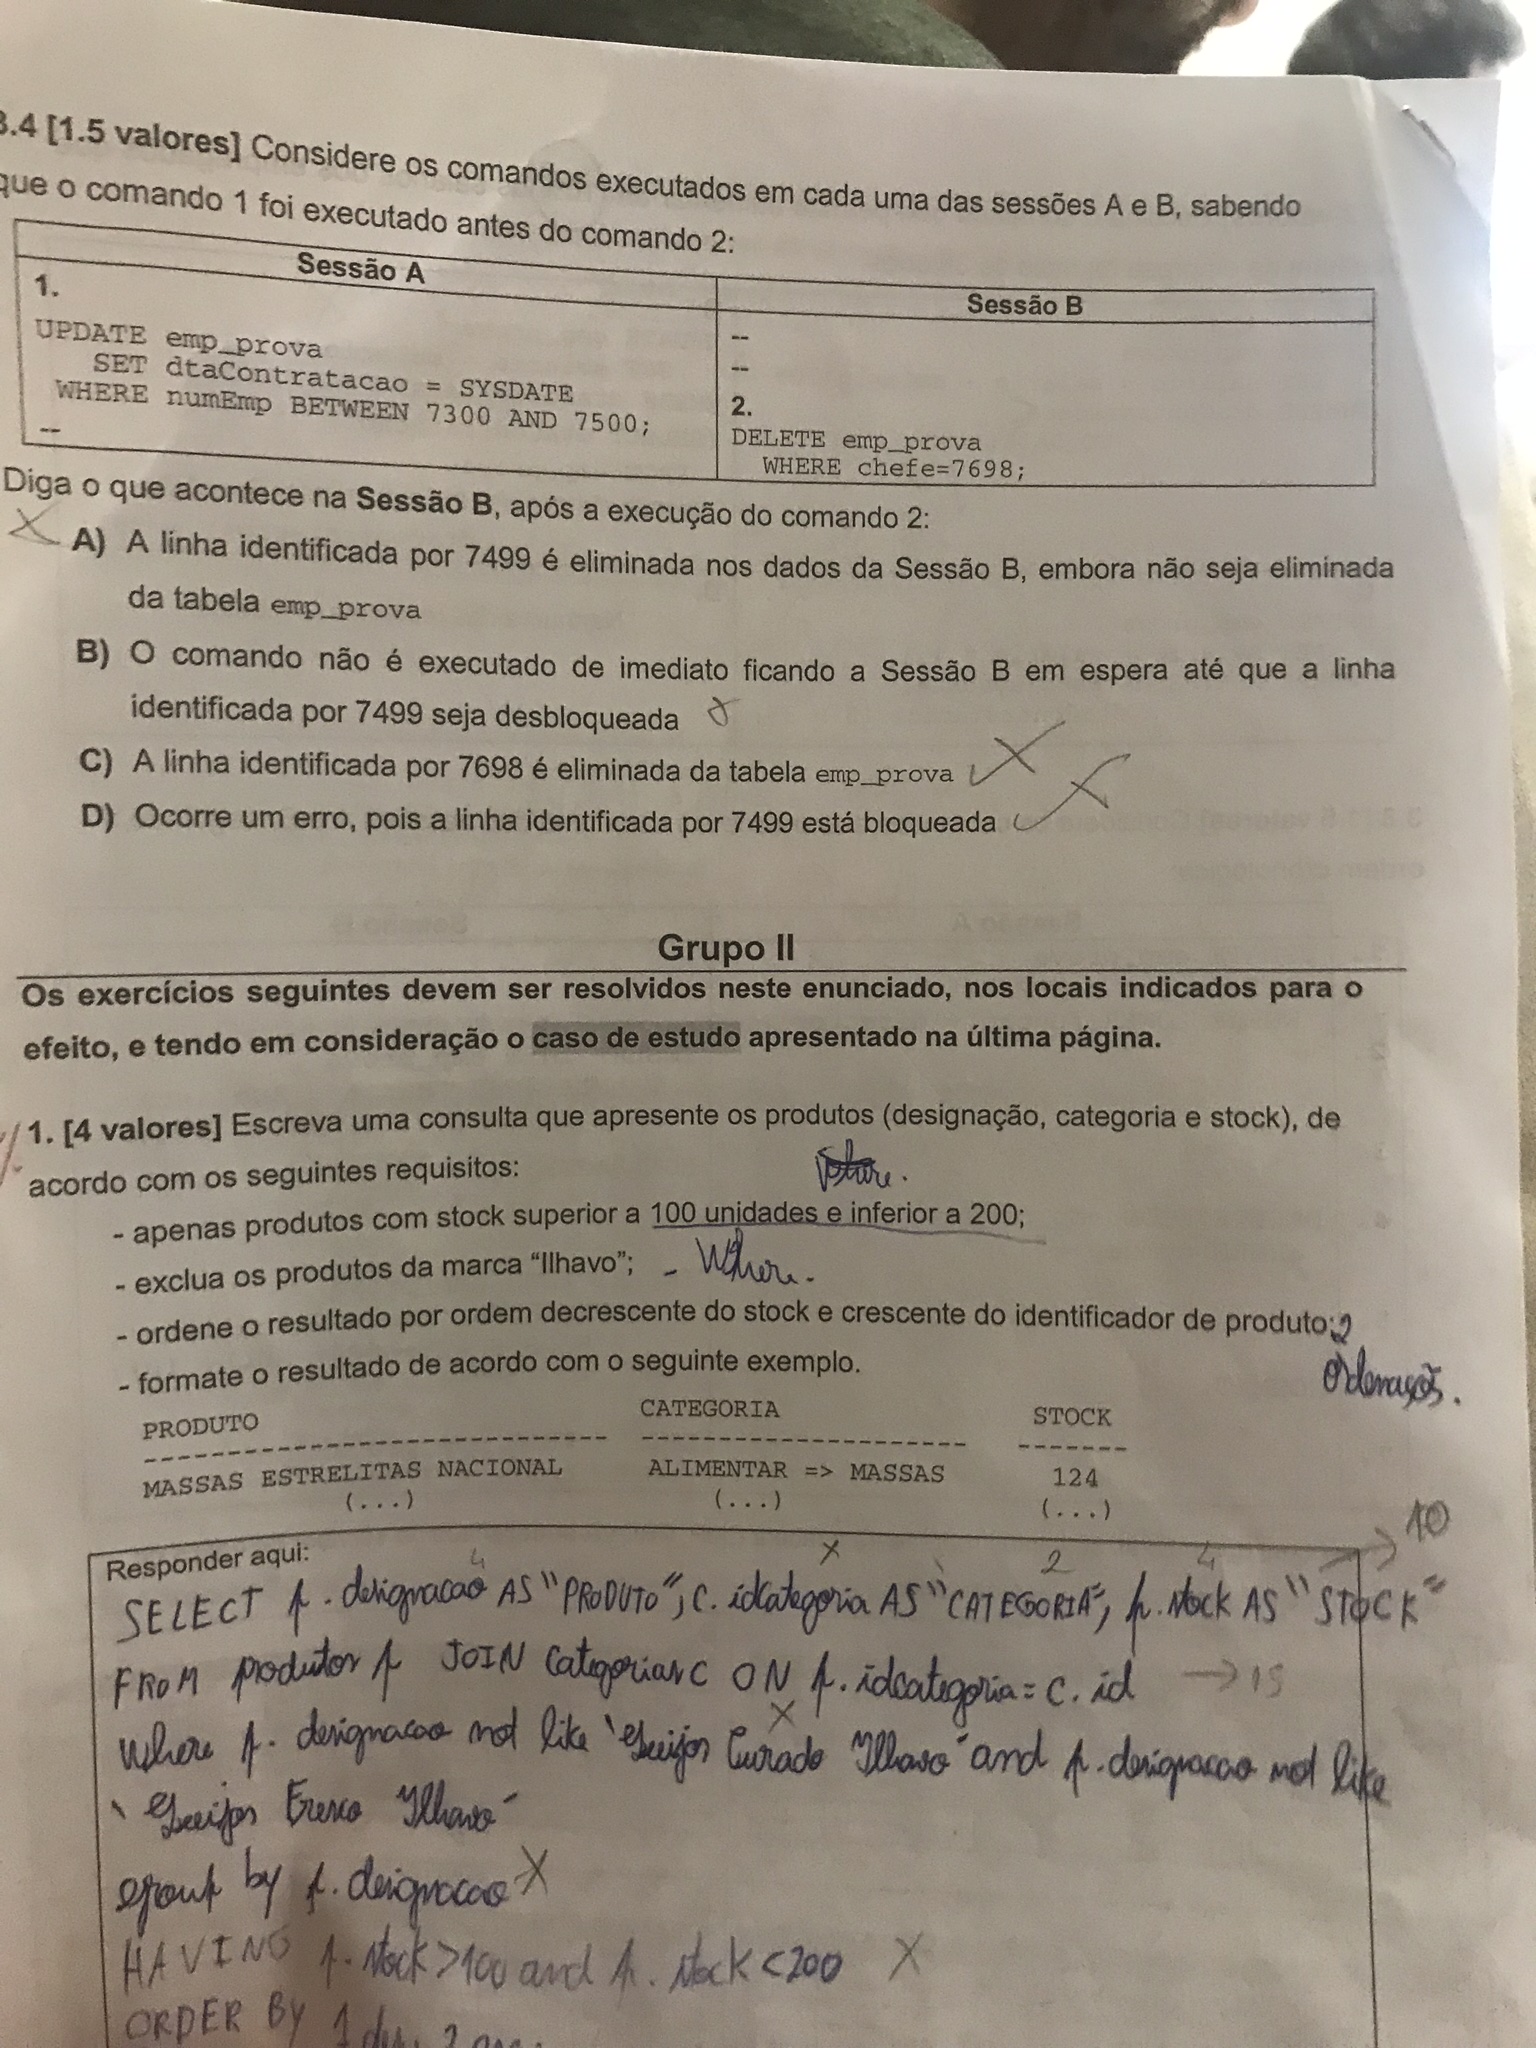 3.4 [1.5 valores] Considere os comandos executados em cada uma das sessões A e B, sabendo
que o comando 1 foi executado antes do comando 2:
Sessão A
Sessão B
1.
UPDATE emp_prova
SET dtaContratacao = SYSDATE
WHERE numEmp BETWEEN 7300 AND 7500;
--
--
--
2.
DELETE emp_prova
WHERE chefe=7698;
Diga o que acontece na Sessão B, após a execução do comando 2:
A) A linha identificada por 7499 é eliminada nos dados da Sessão B, embora não seja eliminada
da tabela emp_prova
B) O comando não é executado de imediato ficando a Sessão B em espera até que a linha
identificada por 7499 seja desbloqueada
C) A linha identificada por 7698 é eliminada da tabela emp_prova
D) Ocorre um erro, pois a linha identificada por 7499 está bloqueada
Grupo II
Os exercícios seguintes devem ser resolvidos neste enunciado, nos locais indicados para o
efeito, e tendo em consideração o caso de estudo apresentado na última página.
1. [4 valores] Escreva uma consulta que apresente os produtos (designação, categoria e stock), de
acordo com os seguintes requisitos:
- apenas produtos com stock superior a 100 unidades e inferior a 200;
- exclua os produtos da marca “Ilhavo”; - Where.
- ordene o resultado por ordem decrescente do stock e crescente do identificador de produto; 2
ordenações.
- formate o resultado de acordo com o seguinte exemplo.
PRODUTO CATEGORIA STOCK
MASSAS ESTRELITAS NACIONAL ALIMENTAR => MASSAS 124
(...) (...) (...)
10
Responder aqui: 4 X 2 4
SELECT p.designacao AS "PRODUTO", c.idcategoria AS "CATEGORIA", p.stock AS "STOCK"
FROM produtos p JOIN categorias c ON p.idcategoria = c.id → 15
Where p.designacao not like 'Queijos Curado Ilhavo' and p.designacao not like
'Queijos Fresco Ilhavo'
group by p.designacao X
HAVING p.stock>100 and p.stock<200 X
ORDER BY